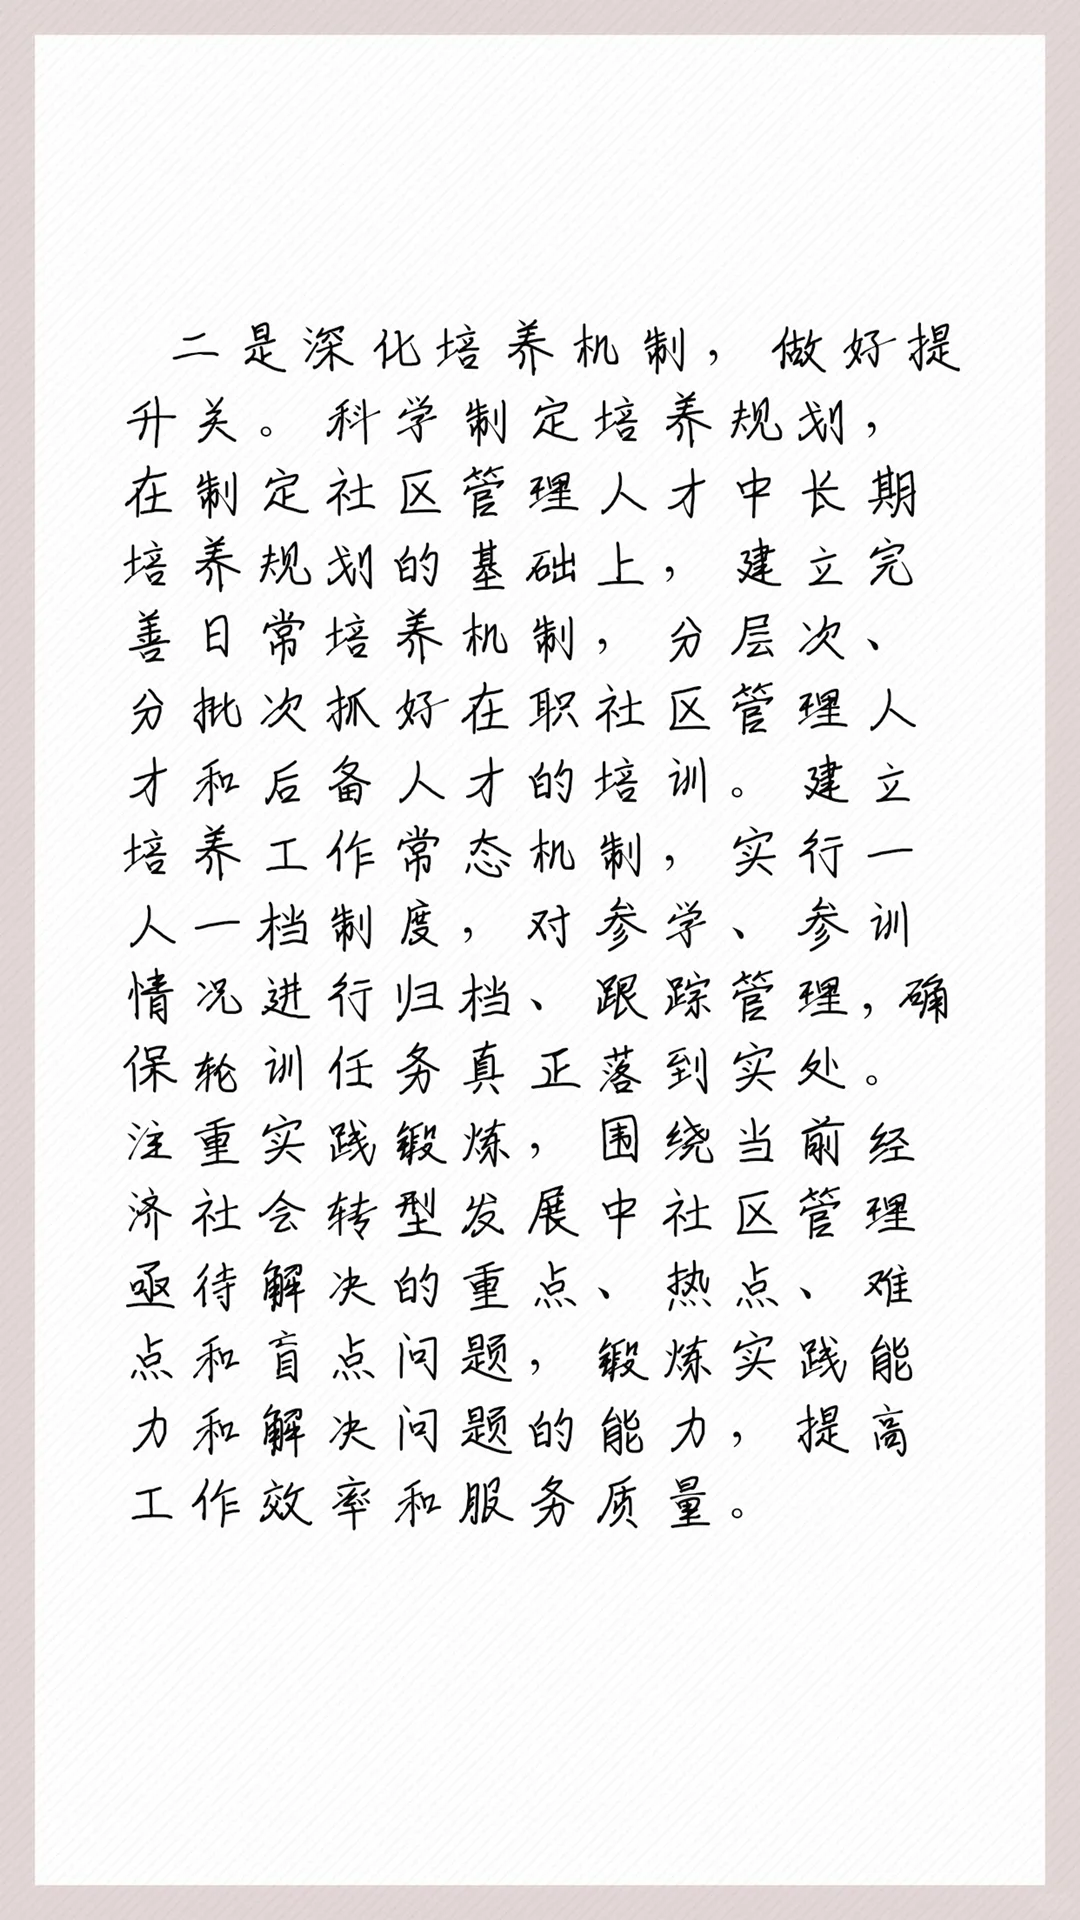 二是深化培养机制，做好提
升关。科学制定培养规划，
在制定社区管理人才中长期
培养规划的基础上，建立完
善日常培养机制，分层次、
分批次抓好在职社区管理人
才和后备人才的培训。建立
培养工作常态机制，实行一
人一档制度，对参学、参训
情况进行归档、跟踪管理，确
保轮训任务真正落到实处。
注重实践锻炼，围绕当前经
济社会转型发展中社区管理
亟待解决的重点、热点、难
点和盲点问题，锻炼实践能
力和解决问题的能力，提高
工作效率和服务质量。